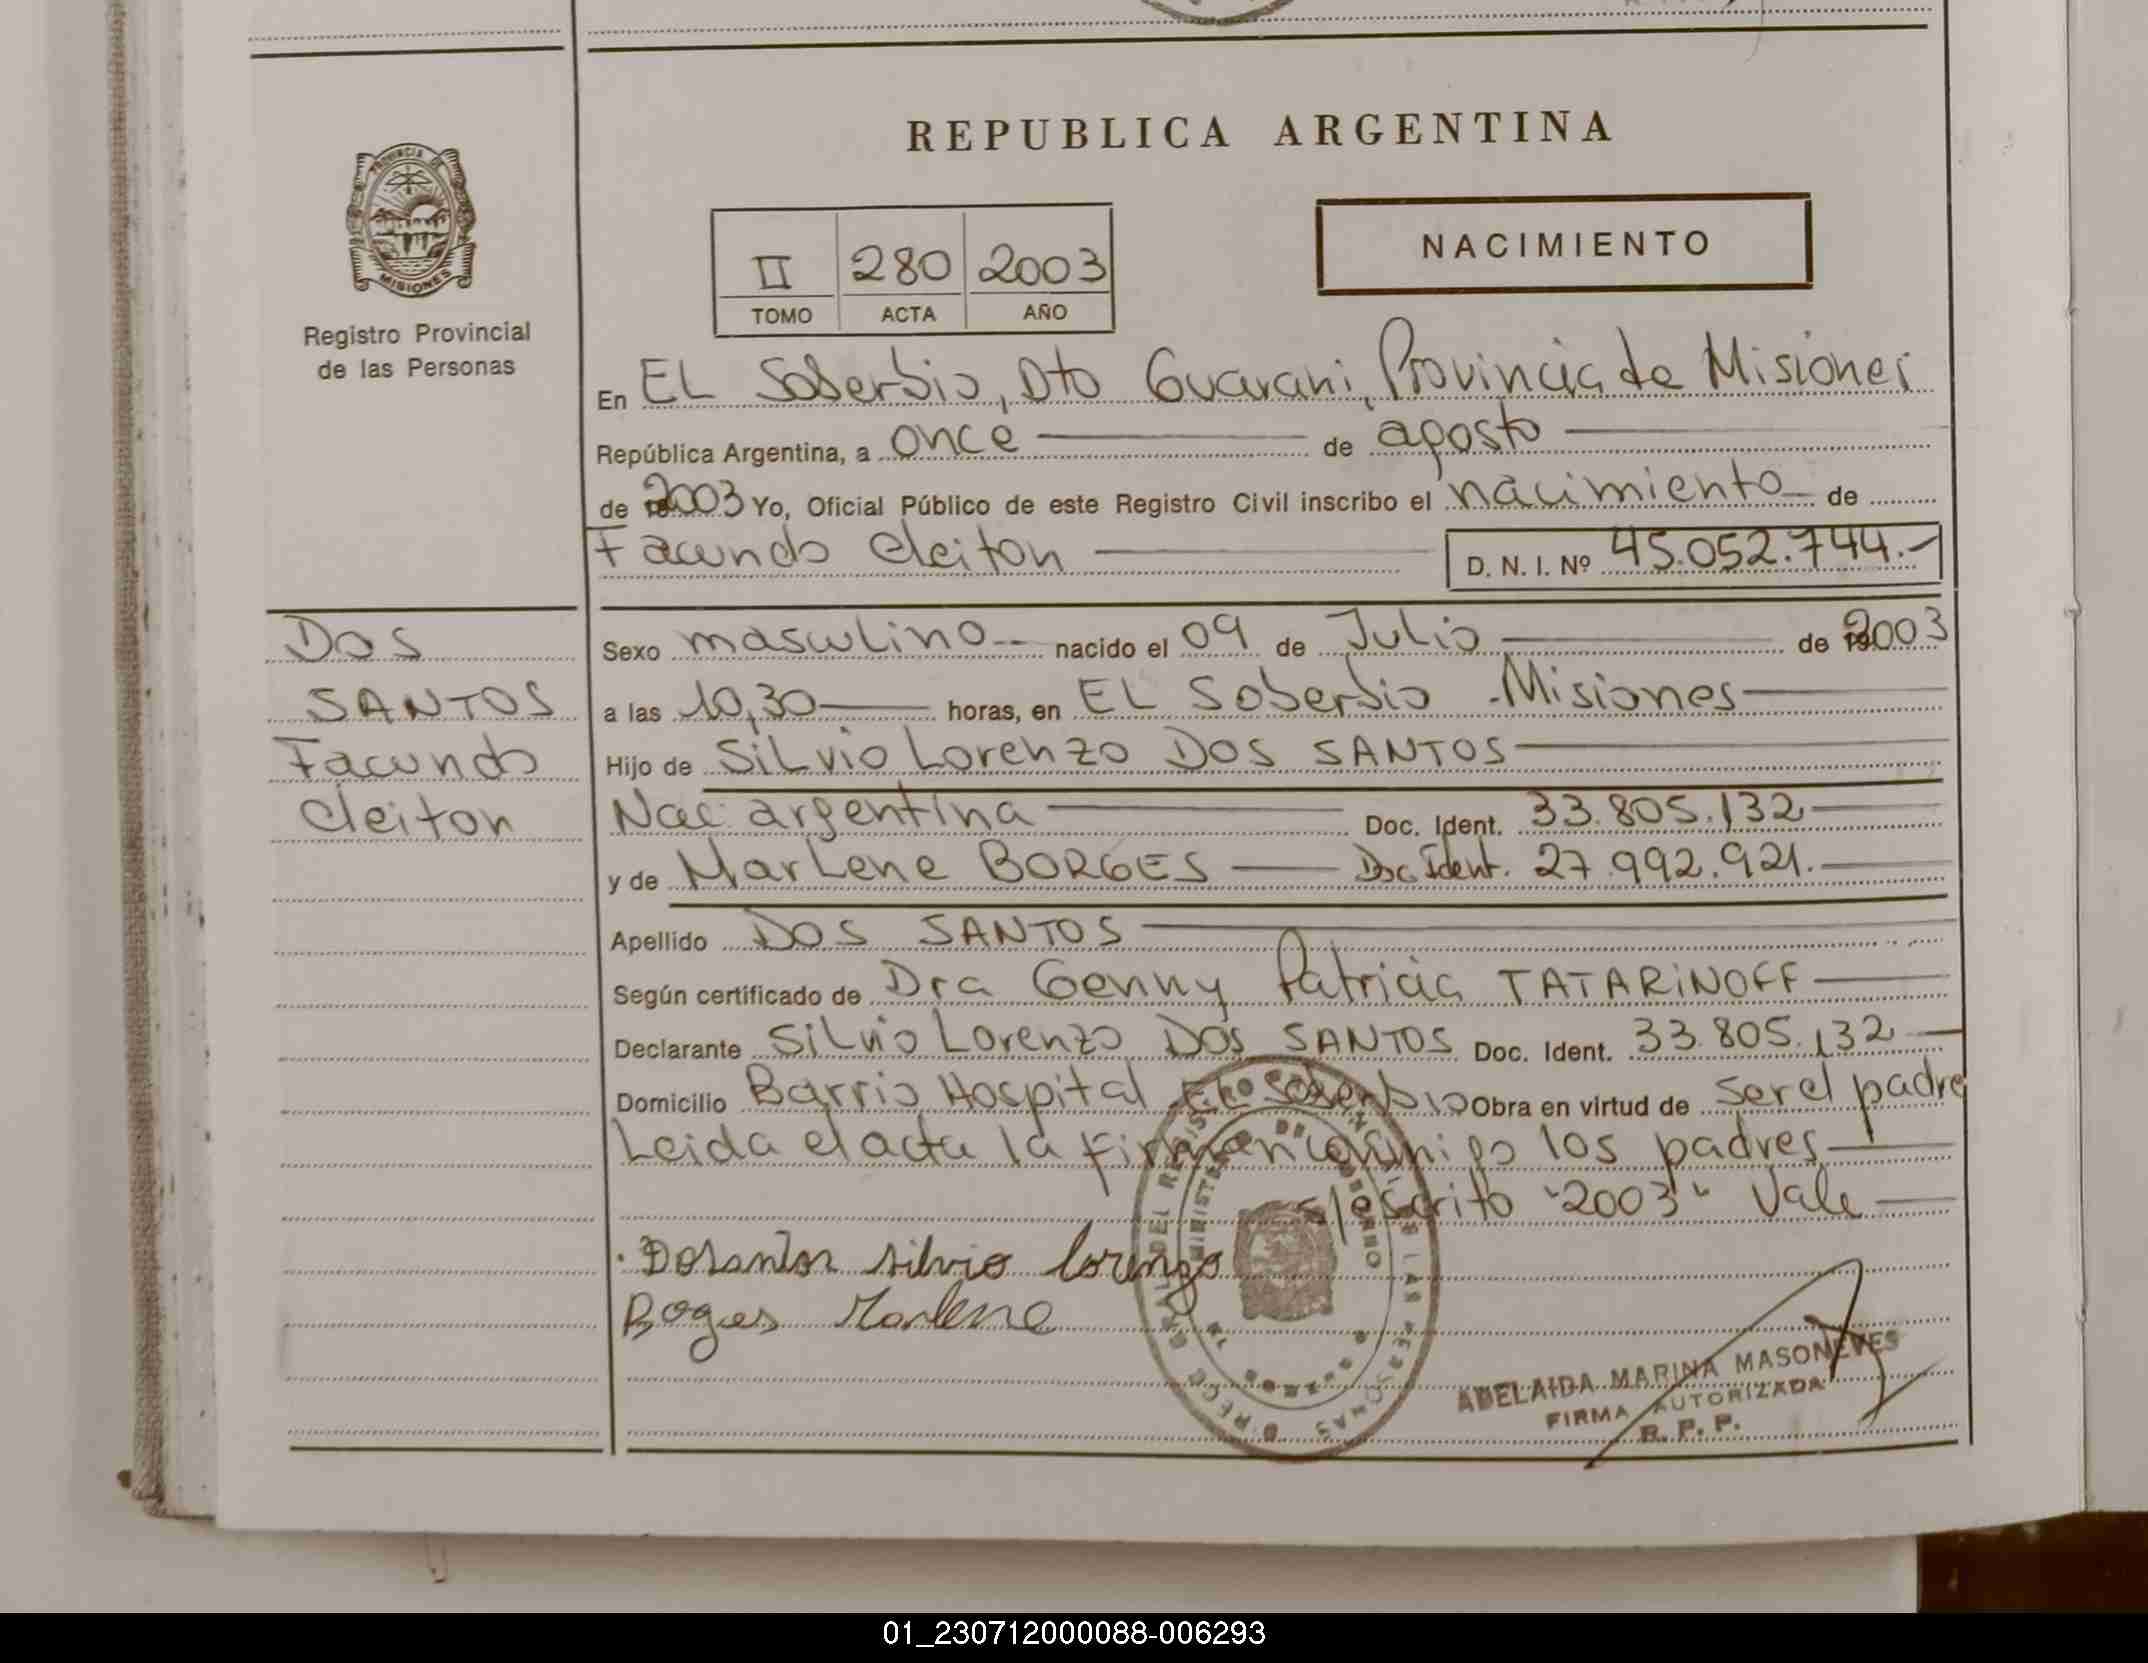 REPUBLICA ARGENTINA
PROVINCIA DE
MISIONES
Registro Provincial
de las Personas
II 280 2003
TOMO ACTA AÑO
NACIMIENTO
En EL Soberbio, Dto Guarani, Provincia de Misiones
República Argentina, a once de agosto
de 2003 Yo, Oficial Público de este Registro Civil inscribo el nacimiento de
Facundo Cleiton D. N. I. Nº 45.052.744.-
DOS
SANTOS
Facundo
Cleiton
Sexo masculino nacido el 09 de Julio de 2003
a las 10,30 horas, en EL Soberbio - Misiones
Hijo de SiLvio Lorenzo DOS SANTOS
Nac. argentina Doc. Ident. 33.805.132
y de MarLene BORGES Doc Ident. 27.992.921.
Apellido DOS SANTOS
Según certificado de Dra Genny Patricia TATARiNOFF
Declarante SiLvio Lorenzo DOS SANTOS Doc. Ident. 33.805.132
Domicilio Barrio Hospital EL Soberbio Obra en virtud de ser el padre
Leida el acta la firman conmigo los padres
s/escrito "2003" Vale
Dosantos silvio lorenzo
Boges Marlene
ADELAIDA MARINA MASONEVES
FIRMA AUTORIZADA
R. P. P.
01_230712000088-006293